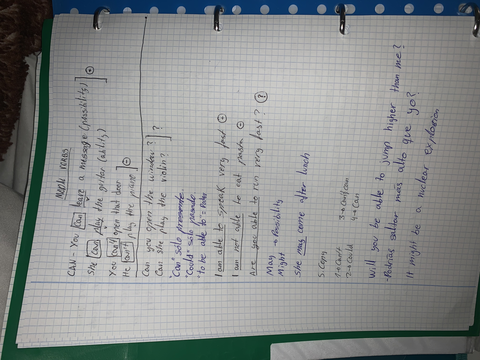 MODAL VERBS
CAN - You can leave a message (possibility)
She can play the guitar (ability)
You can't open that door
He can't play the piano
Can you open the window?
Can she play the violin?
"Can" solo presente.
"Could" solo pasado.
"to be able to" =
I am able to speak very fast
I am not able to eat
Are you able to run very fast?
May → Possibility
Might
She may come after lunch
2→Could
4→Can
Will you be able to jump higher than me?
saltar más alto que yo?
It might be a nuclear explosion